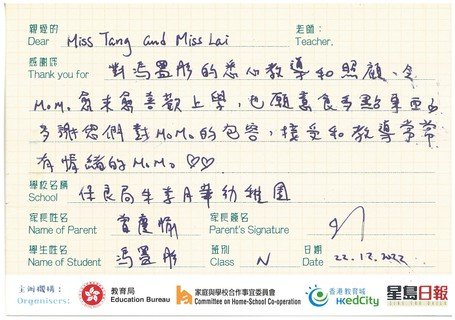 親愛的 老師:
Dear Miss Tang and Miss Lai Teacher,
感謝您
Thank you for 對馮 彤的悉心教導和照顧、令
MoMo 愈來愈喜歡上學，也願意食多點東西
多謝您們對MoMo的包容，接受和教導常常
有情緒的MoMo ♡♡
學校名稱
School 保良局朱李月華幼稚園
家長姓名 家長簽名
Name of Parent 曾慶愉 Parent's Signature
學生姓名 班別 日期
Name of Student 馮 彤 Class N Date 22.12.2022
主辦機構:
Organisers:
教育局
Education Bureau
家庭與學校合作事宜委員會
Committee on Home-School Co-operation
香港教育城
HKedCity
星島日報